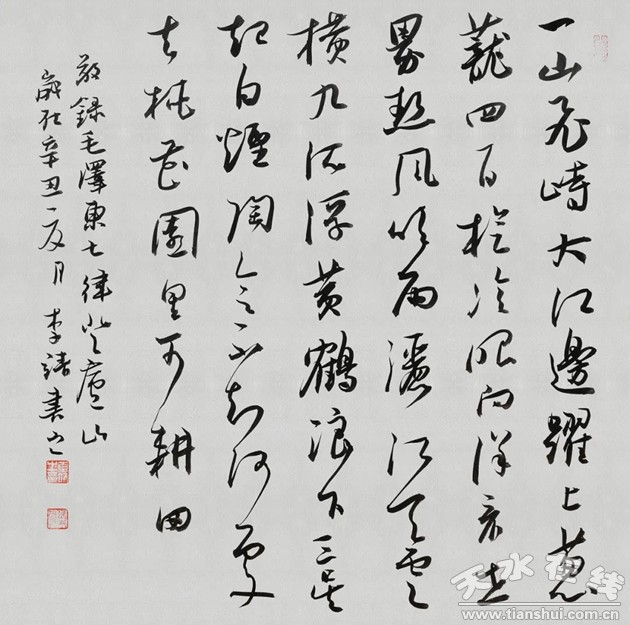 一山飛峙大江邊躍上葱
蘢四百旋冷眼向洋看世
界熱風吹雨灑江天雲
橫九派浮黄鶴浪下三吴
起白煙陶令不知何處
去桃花園里可耕田
敬錄毛澤東七律登廬山
歲在辛丑月李書之
天水在线
www.tianshui.com.cn